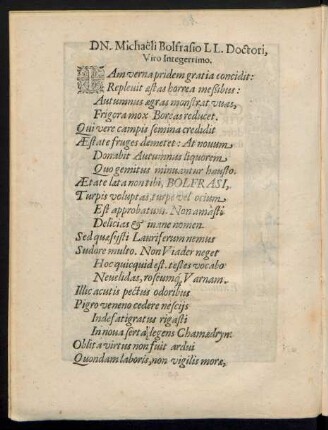 DN. Michaëli Bolfrasio LL. Doctori,
Viro Integerrimo.
IAm verna pridem gratia concidit:
Replevit æstas horrea meßibus:
Autumnus ægras monstrat uvas,
Frigora mox Boreas reducet.
Qui vere campis semina credidit
Æstate fruges demetet: At novum
Donabit Autumnus liquorem
Quo gemitus minuentur hausto.
Ætate lata non tibi, BOLFRASI,
Turpis voluptas, turpe vel ocium
Est approbatum. Non amâsti
Delicias & inane nomen.
Sed quæsisti Lauriferum nemus
Sudore multo. Non Viader neget
Hoc quicquid est. testes vocabo
Neuelidas, roseumq; Varnam.
Illic acutis pectus odoribus
Pigro veneno cedere nescijs
Indefatigatus rigasti
In nova serta legens Chamædryn.
Oblita virtus non fuit ardui
Quondam laboris, non vigilis moræ,